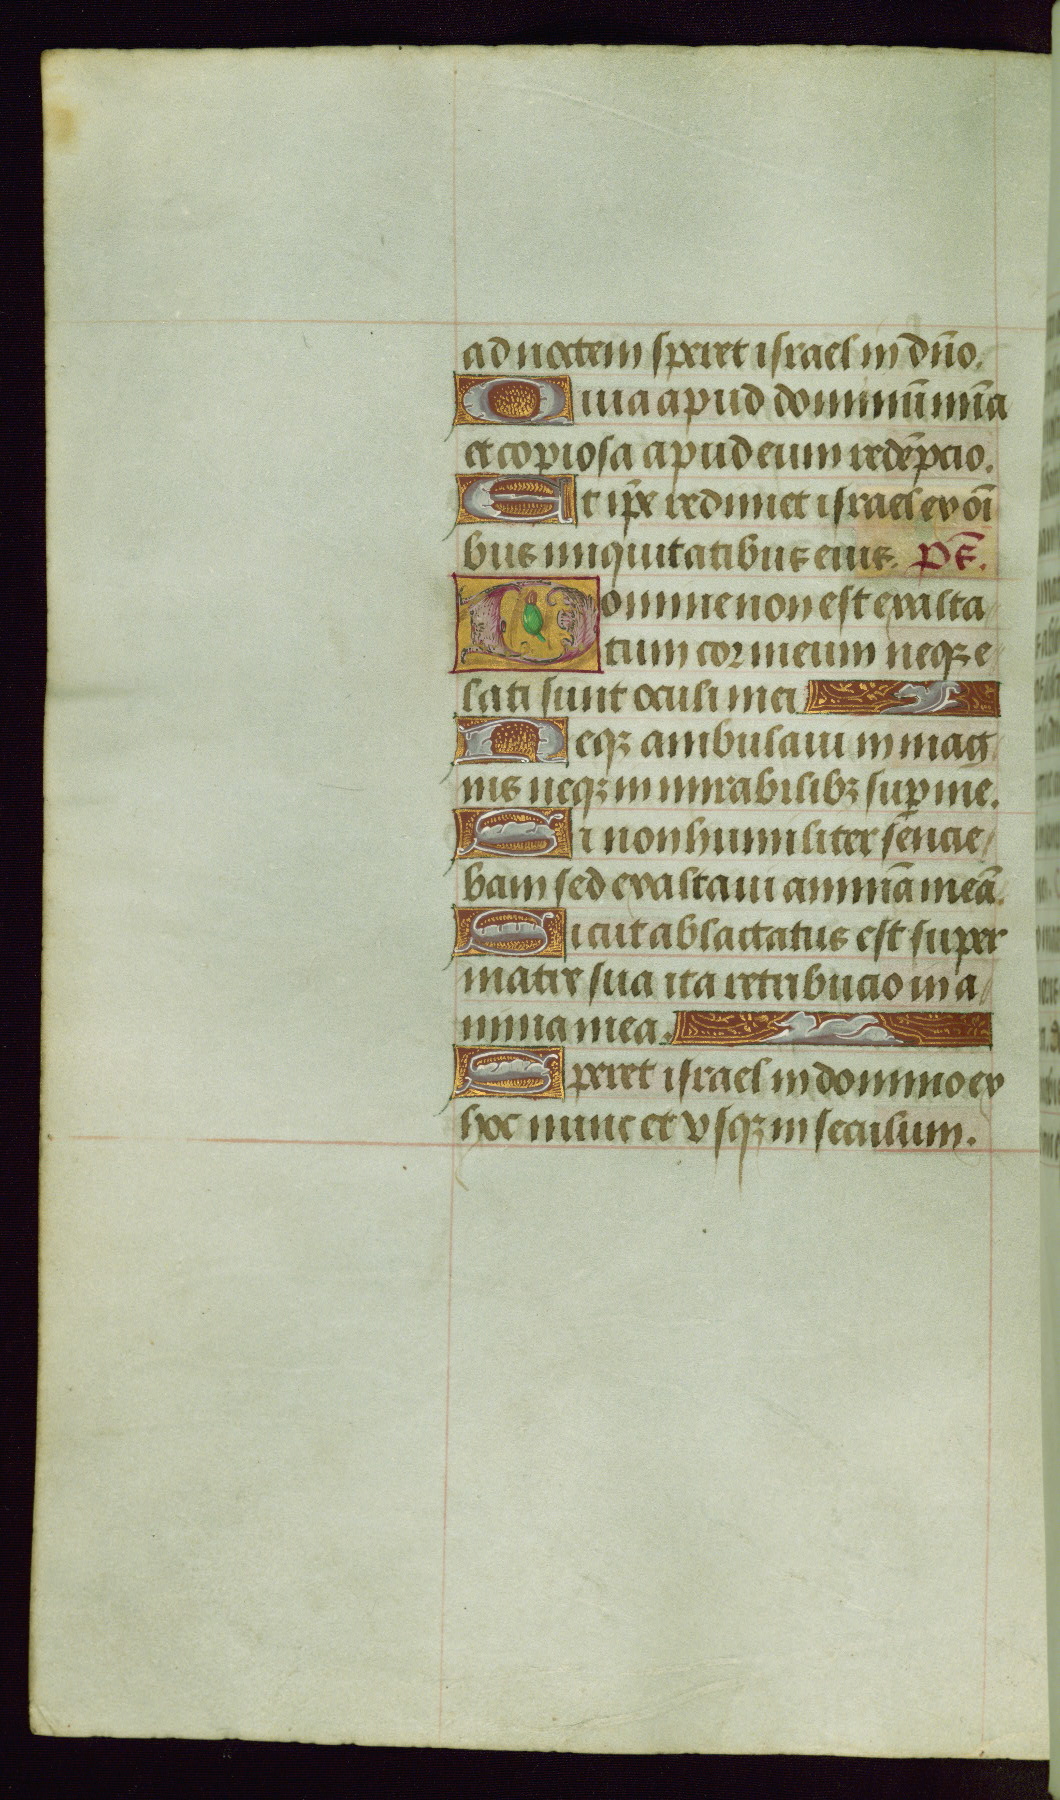 ad noctem speret israel in dño.
Quia apud dominū mīa
et copiosa apud eum redēpcio.
Et ip̄e redimet israel ex oī
bus iniquitatibus eius. Pš.
Domine non est exalta
tum cor meum neqꝫ e
lati sunt oculi mei
Neqꝫ ambulaui in mag
nis neqꝫ in mirabilibꝫ sup̄ me.
Si non humiliter sencie
bam sed exaltaui animā meā.
Sicut ablactatus est super
matre sua ita retribucio in a
nima mea.
Speret israel in domino ex
hoc nunc et vsqꝫ in seculum.